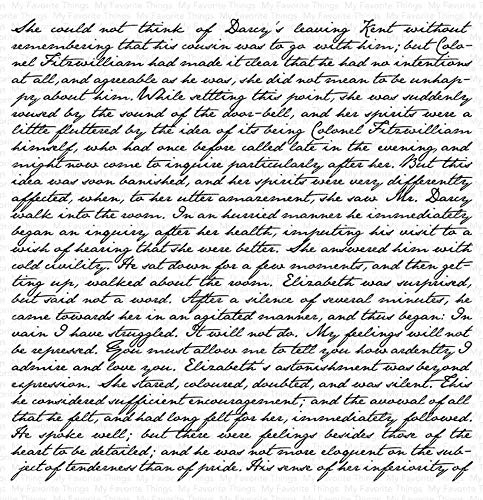 She could not think of Darcy's leaving Kent without
remembering that his cousin was to go with him; but Colo-
nel Fitzwilliam had made it clear that he had no intentions
at all, and agreeable as he was, she did not mean to be unhap-
py about him. While settling this point, she was suddenly
roused by the sound of the door-bell, and her spirits were a
little fluttered by the idea of its being Colonel Fitzwilliam
himself, who had once before called late in the evening, and
might now come to inquire particularly after her. But this
idea was soon banished, and her spirits were very differently
affected, when, to her utter amazement, she saw Mr. Darcy
walk into the room. In an hurried manner he immediately
began an inquiry after her health, imputing his visit to a
wish of hearing that she were better. She answered him with
cold civility. He sat down for a few moments, and then get-
ting up, walked about the room. Elizabeth was surprised,
but said not a word. After a silence of several minutes, he
came towards her in an agitated manner, and thus began: In
vain I have struggled. It will not do. My feelings will not
be repressed. You must allow me to tell you how ardently I
admire and love you. Elizabeth's astonishment was beyond
expression. She stared, coloured, doubted, and was silent. This
he considered sufficient encouragement; and the avowal of all
that he felt, and had long felt for her, immediately followed.
He spoke well; but there were feelings besides those of the
heart to be detailed; and he was not more eloquent on the sub-
ject of tenderness than of pride. His sense of her inferiority of